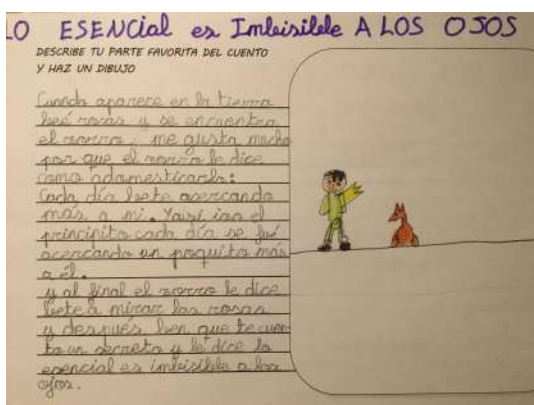 LO ESENCial es Imbisible A LOS OJOS
DESCRIBE TU PARTE FAVORITA DEL CUENTO
Y HAZ UN DIBUJO
Cuando aparece en la tierra
beé rosas y se encuentra
el zorro, me gusta mucho
por que el zorro le dice
como adamesticarlo:
Cada día bete acercando
más a mi. Yasí iso el
principito cada día se fué
acercando un poquito más
a él.
y al final el zorro le dice
bete a mirar las rosas
y después ben que te cuen-
to un secreto y le dice lo
esencial es imbisible a los
ojos.